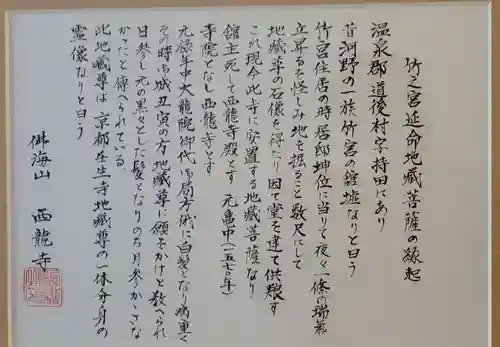 竹之宮延命地蔵菩薩の縁起
温泉郡道後村字持田にあり
昔河野の一族竹宮の舘址なりと曰う
竹宮住居の時居邸坤位に当りて夜々一條の瑞氣
立昇るを怪しみ地を掘ること数尺にして
地蔵尊の石像を得たり因て堂を建て供養す
これ現今此寺に安置する地蔵菩薩なり
舘主死して西龍寺殿とす 元亀中(一五七〇年)
寺院となし西龍寺とす
元禄年中大龍院御代 御局方俄に白髪となり病重く
その時御城丑寅の方地蔵尊に願をかけと教へられ
日参し元の黒々とした髪となりのち月参かゝさな
かったと傳へられている
此地蔵尊は京都壬生寺地蔵尊の一体分身の
霊像なりと曰う
佛海山 西龍寺